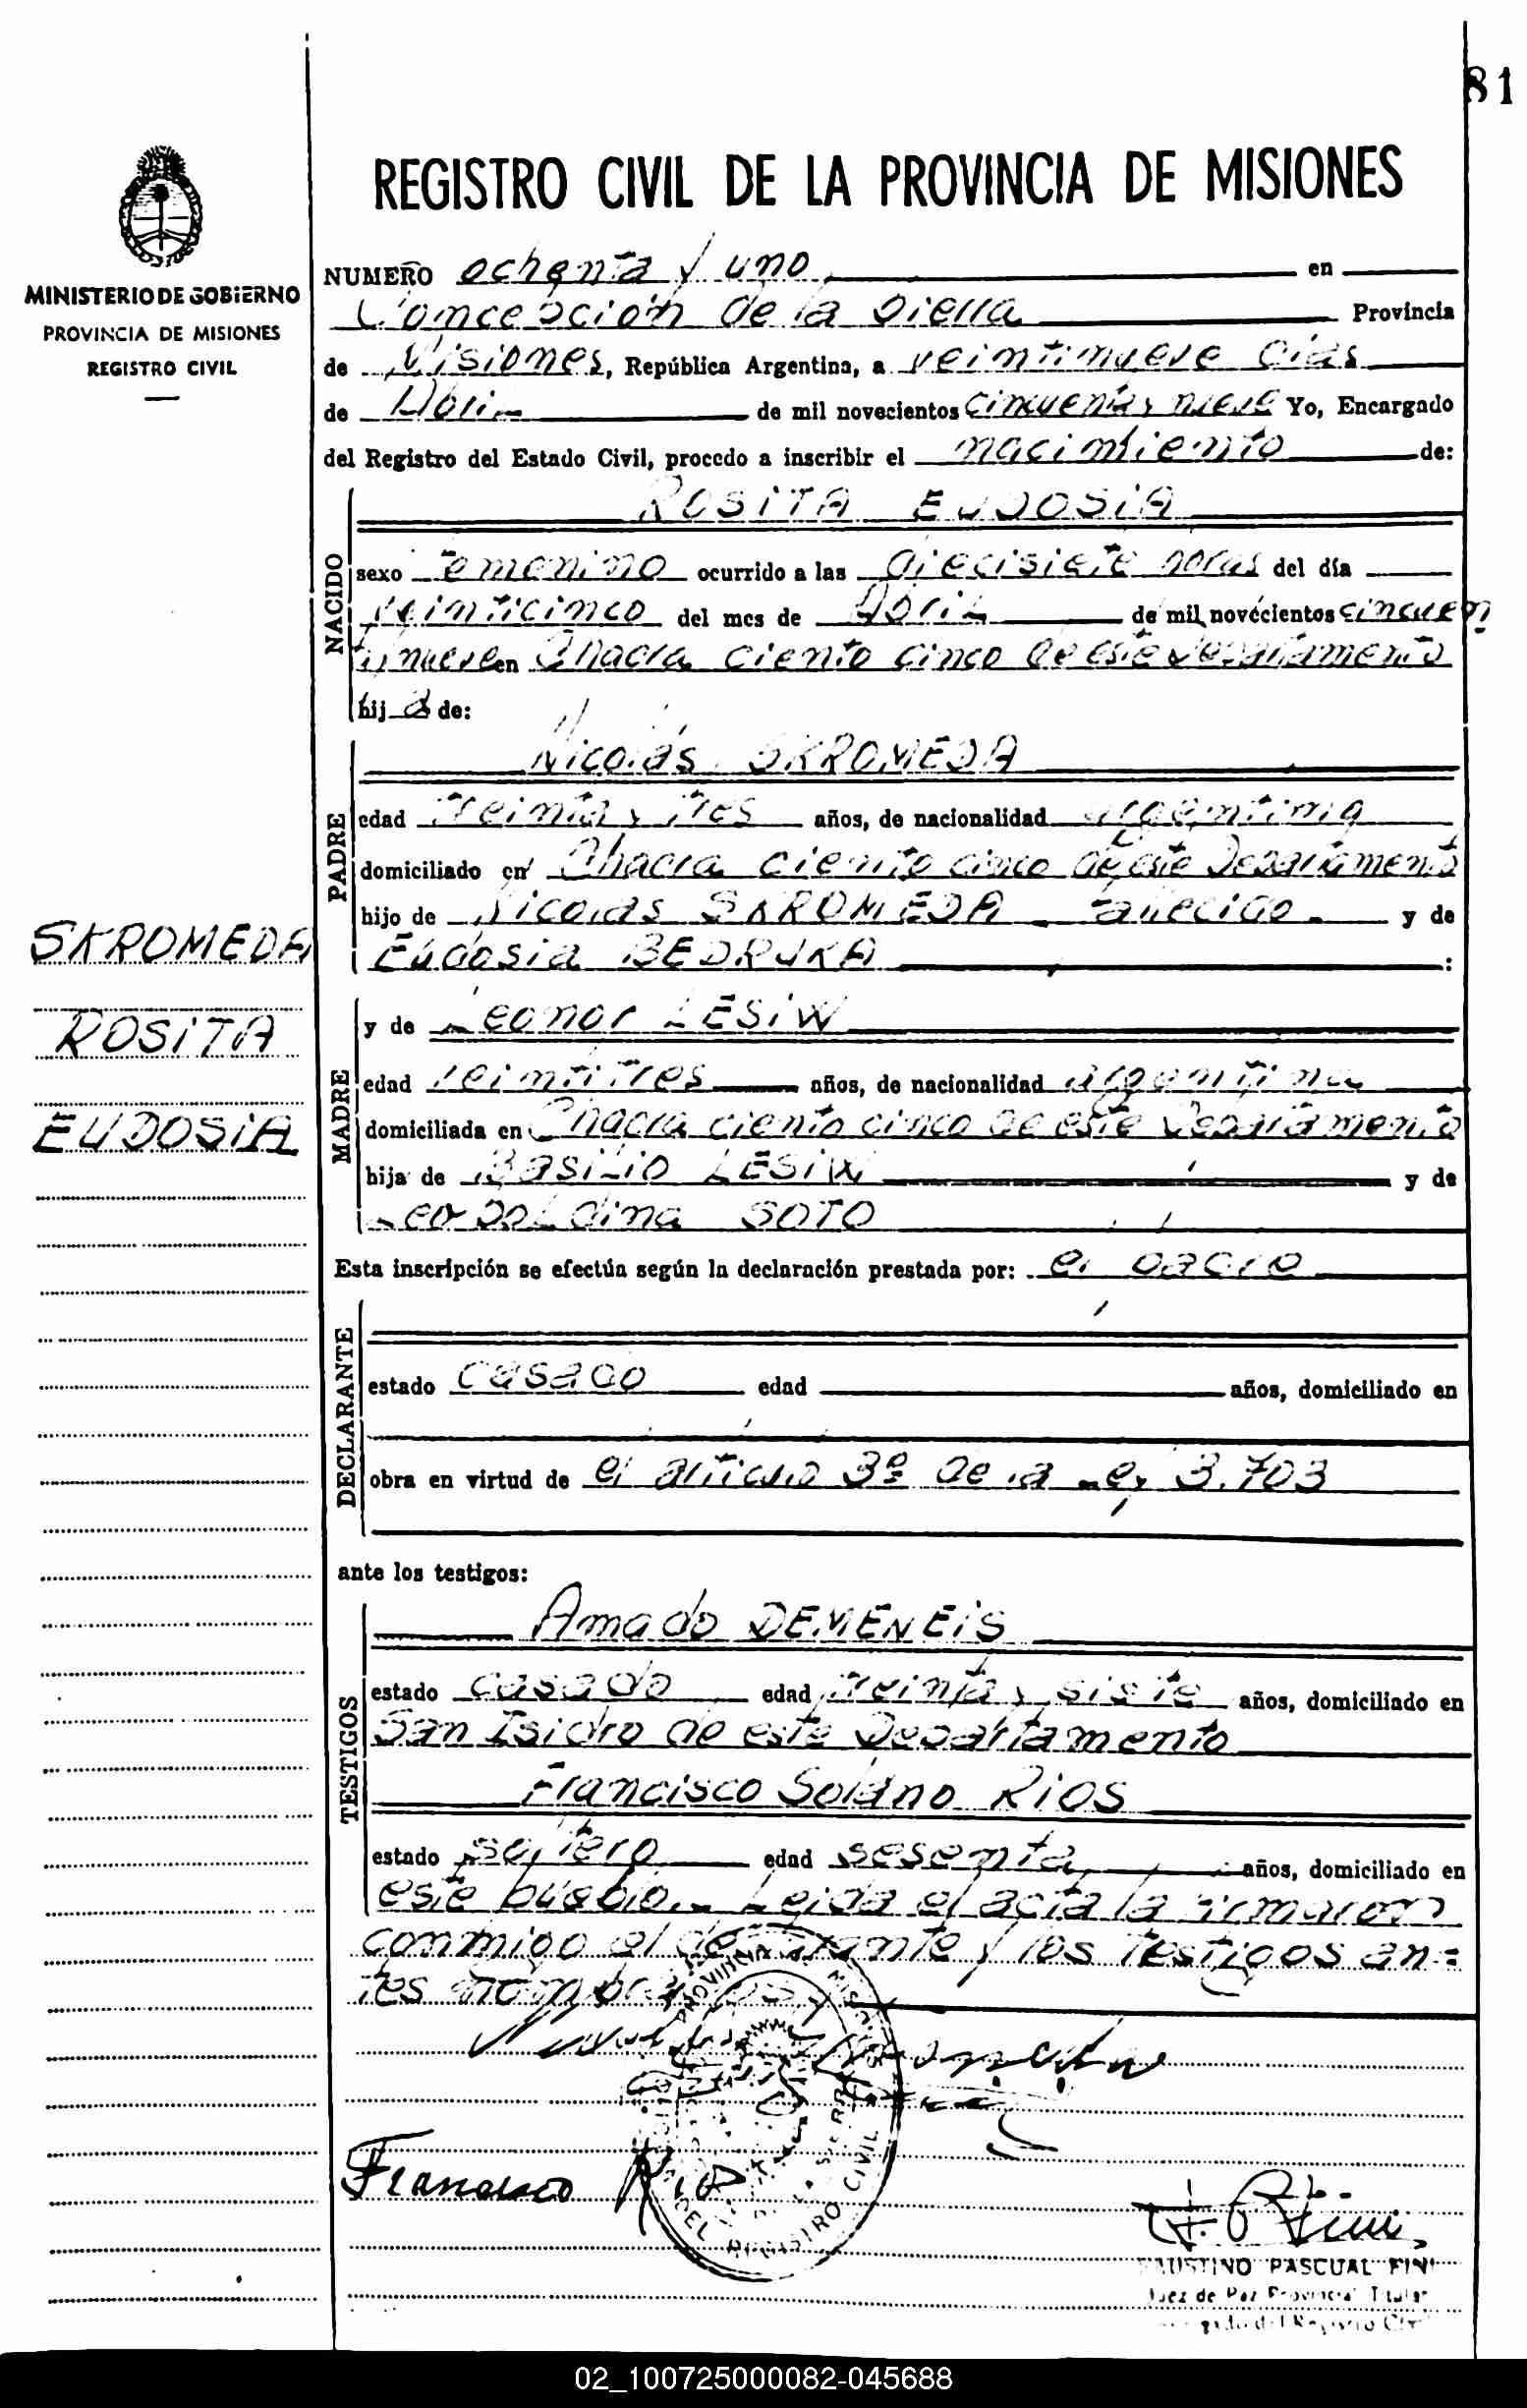 81
REGISTRO CIVIL DE LA PROVINCIA DE MISIONES
MINISTERIO DE GOBIERNO
PROVINCIA DE MISIONES
REGISTRO CIVIL
NUMERO ochenta y uno en
Concepción de la Sierra Provincia
de Misiones, República Argentina, a veintinueve días
de Abril de mil novecientos cincuenta y nueve Yo, Encargado
del Registro del Estado Civil, procedo a inscribir el nacimiento de:
NACIDO
ROSITA EUDOSIA
sexo femenino ocurrido a las diecisiete horas del día
veinticinco del mes de Abril de mil novecientos cincuen
tinueve en Chacra ciento cinco de este departamento
hija de:
PADRE
Nicolás SKROMEDA
edad treinta y tres años, de nacionalidad argentina
domiciliado en Chacra ciento cinco de este Departamento
hijo de Nicolás SKROMEDA fallecido.- y de
Eudosia BEDRUKA :
MADRE
y de Leonor LESIW
edad veintitres años, de nacionalidad argentina
domiciliada en Chacra ciento cinco de este Departamento
hija de Basilio LESIW y de
Leopoldina SOTO
SKROMEDA
ROSITA
EUDOSIA
Esta inscripción se efectúa según la declaración prestada por: el padre
DECLARANTE
estado casado edad años, domiciliado en
obra en virtud de el artículo 3º de la Ley 3.703
ante los testigos:
TESTIGOS
Amado DEMENEIS
estado casado edad treinta y siete años, domiciliado en
San Isidro de este Departamento
Francisco Solano RIOS
estado soltero edad sesenta años, domiciliado en
este pueblo.- Leida el acta la firmaron
conmigo el declarante y los testigos an=
tes nombrados
PROVINCIA DE MISIONES
DEL REGISTRO CIVIL
Francisco Rios
FAUSTINO PASCUAL FINI
Juez de Paz Provincial Titular
Encargado del Registro Civil
02_100725000082-045688